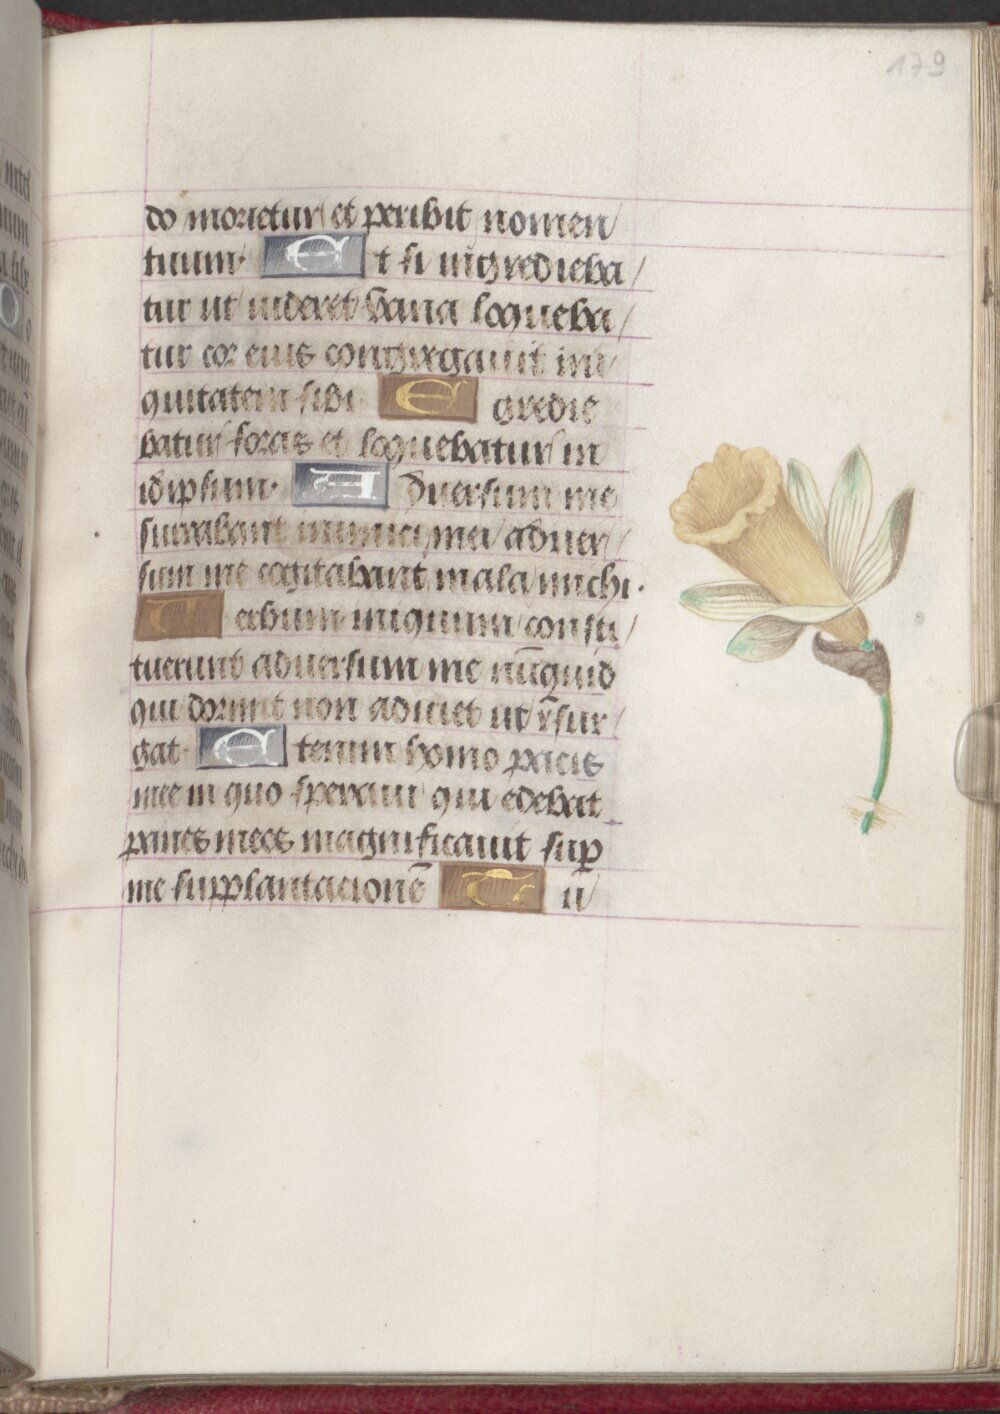 179
do morietur et peribit nomen
tuum. Et si ingredieba
tur ut videret vana loqueba
tur cor eius congregavit ini
quitatem sibi Egredie
batur foras et loquebatur in
idipsum. Adversum me
susurrabant inimici mei adver
sum me cogitabant mala michi.
Verbum iniquum consti
tuerunt adversum me nūquid
qui dormit non adiciet ut
gat Etenim homo pacis
mee in quo speravi qui edebat
panes meos magnificavit sup
me supplantacionē Tu